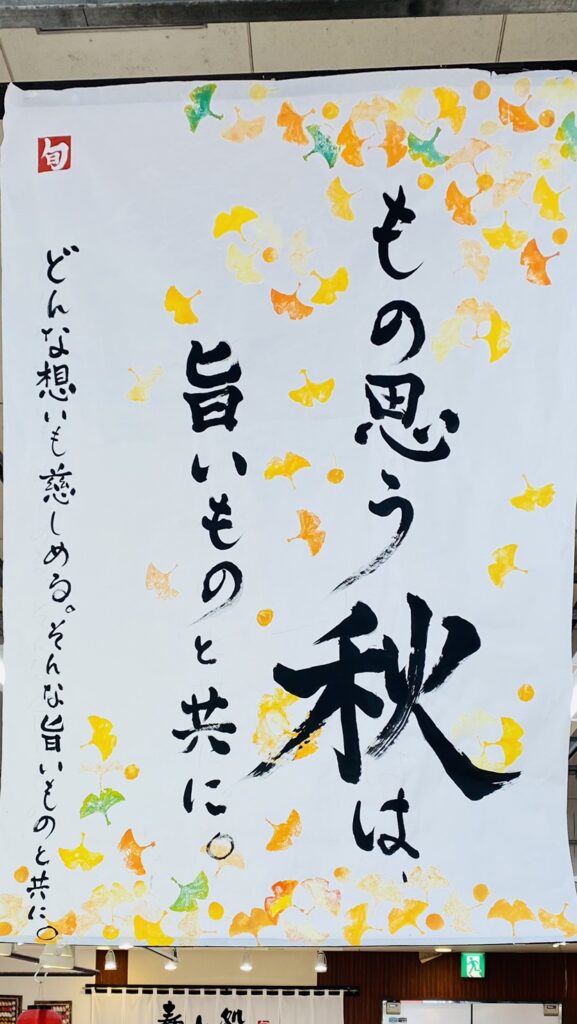 もの思う秋は、
旨いものと共に。
どんな想いも慈しめる。そんな旨いものと共に。
旬